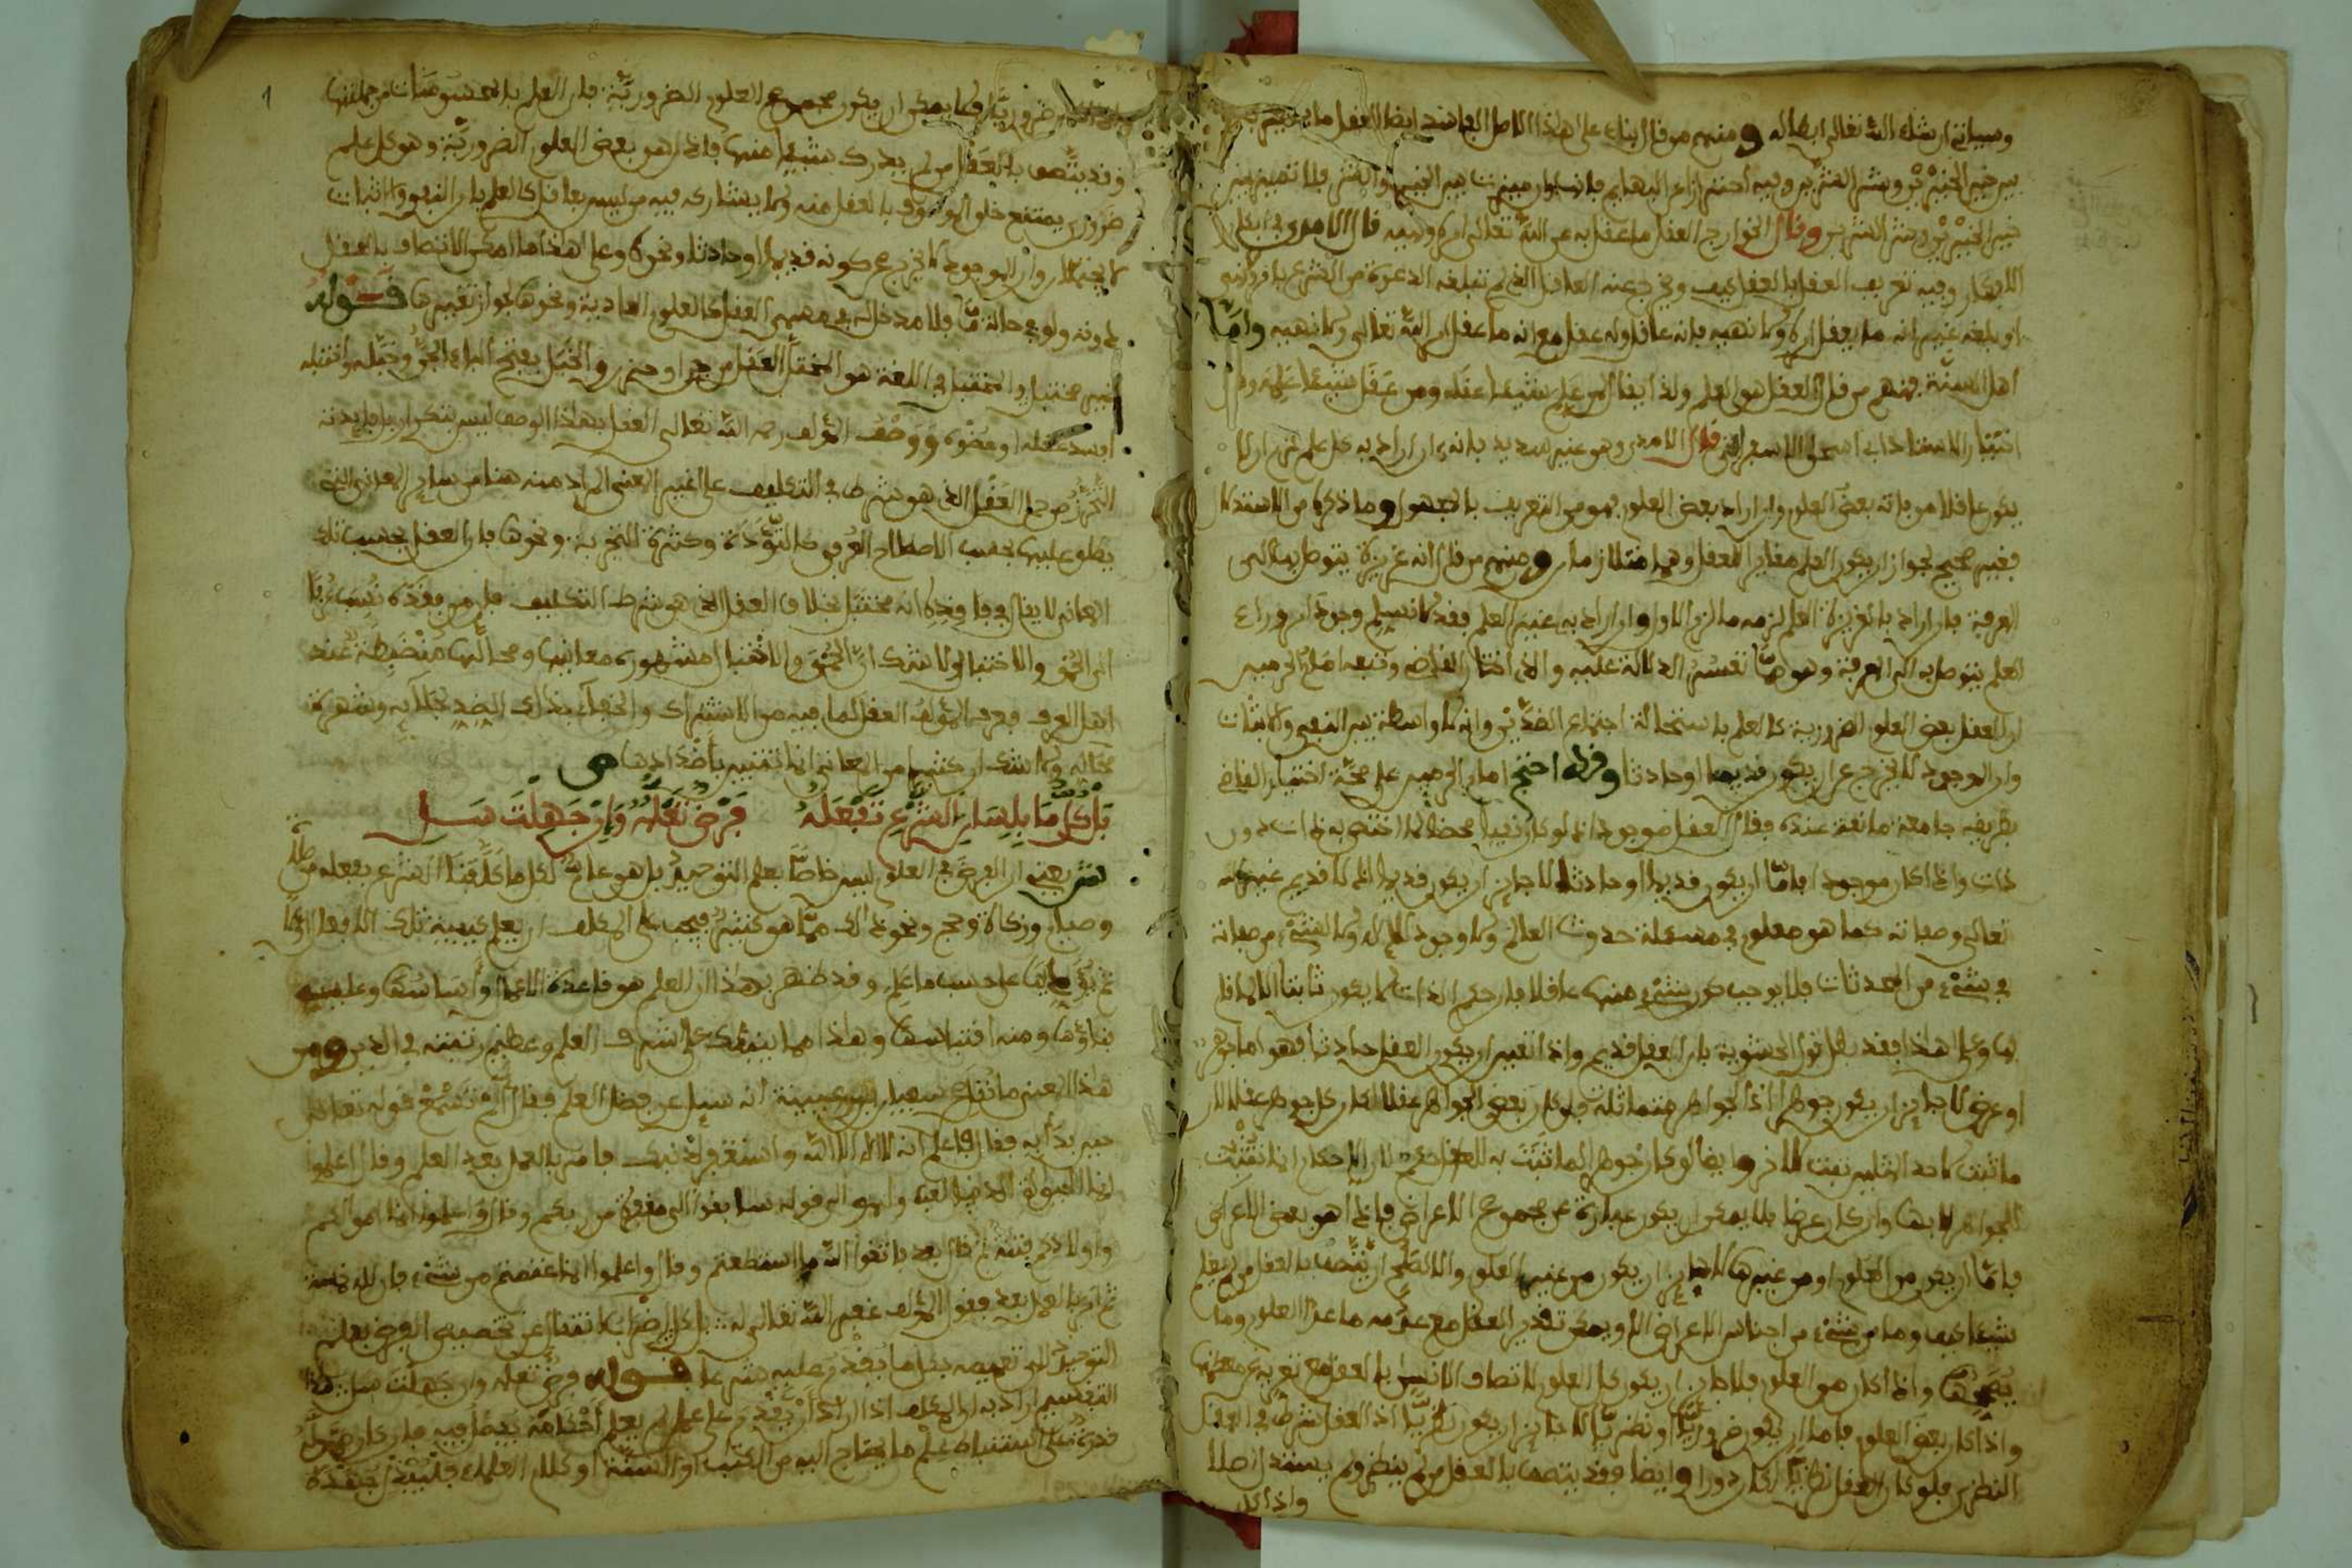 وسياتي ان شاء الله تعالى ابطاله ومنهم من قال بناء على هذا الاصل الفاسد ايضا العقل ما به يميز
بين خير الخيرين وشر الشرين وفيه احتراز عن البهائم فانها وان ميزت بين الخير والشر فلا تميز بين
خير الخيرين وشر الشرين وقال الخوارج العقل ما عقل به عن الله تعالى امره ونهيه قال الامدي في ابكار
الافكار وفيه تعريف العقل بالعقل كيف ويخرج عنه العاقل الذي لم تبلغه الدعوة من الشرع
او بلغه غير انه ما يعقل امره ولا نهيه فانه عاقل وله عقل مع انه ما عقل امر الله تعالى ولا نهيه واما
اهل السنة فمنهم من قال العقل هو العلم ولذا يقال لمن علم شيئا عقله ومن عقل شيئا علمه
اختيار الاستاذ ابي اسحاق الاسفرايني قال الامدي وهو غير سديد فانه ان اراد به كل علم لزم ان لا
يكون عاقلا من فاته بعض العلوم وان اراد بعض العلوم فهو من التعريف بالمجهول وما ذكره من الاستدلال
فغير صحيح لجواز ان يكون العلم مغايرا للعقل وهما متلازمان ومنهم من قال انه غريزة يتوصل بها الى
المعرفة فان اراد بالغريزة العلم لزمه ما لزم الاول وان اراد به غير العلم فقد لا نسلم وجود امر وراء
العلم يتوصل به الى المعرفة وهو مما تعسر الدلالة عليه والذي اختار القاضي وتبعه امام الحرمين
ان العقل بعض العلوم الضرورية كالعلم باستحالة اجتماع الضدين وانه لا واسطة بين النفي والاثبات
وان الموجود لا يخرج عن ان يكون قديما او حادثا وقد احتج امام الحرمين على صحة اختيار القاضي
بطريقة جامعة مانعة عنده فقال العقل موجود اذ لو كان نفيا محضا لما اختص به ذات دون
ذات واذا كان موجودا فاما ان يكون قديما او حادثا لا جائز ان يكون قديما اذ لا قديم غير الله
تعالى وصفاته كما هو معلوم في مسئلة حدوث العالم ولا وجود لاله ولا لشيء من صفاته
في شيء من المحدثات فلا يوجب كون شيء منها عاقلا فان حكم الذات لا يكون ثابتا الا لما قام
بها وعلى هذا فقد بطل قول الحشوية بان العقل قديم واذا تعين ان يكون العقل حادثا فهو اما جوهر
او عرض لا جائز ان يكون جوهرا اذ الجواهر متماثلة فلو كان بعض الجواهر عقلا لكان كل جوهر عقلا لان
ما ثبت لاحد المثلين ثبت للاخر وايضا لو كان جوهرا لما ثبت به للعاقل حكم لان الاحكام انما تثبت
للجواهر لا بها وان كان عرضا فلا يمكن ان يكون عبارة عن مجموع الاعراض فاذا هو بعض الاعراض
فاما ان يكون من العلوم او من غيرها لا جائز ان يكون من غير العلوم والا لصح ان يتصف بالعقل من لم يعلم
شيئا كيف وما من شيء من اجناس الاعراض الا ويمكن تقدير العقل مع عدمه ما عدا العلوم وما
يصححها واذا كان من العلوم فلا جائز ان يكون كل العلوم لاتصاف الانسان بالعقل مع تعريه عن معظمها
واذا كان بعض العلوم فاما ان يكون ضروريا او نظريا لا جائز ان يكون نظريا اذ العقل شرط في العلم
النظري فلو كان العقل نظريا لكان دورا وايضا فقد يتصف بالعقل من لم ينظر ولم يستدل اصلا
واذا كان
ضروريا فلا يمكن ان يكون مجموع العلوم الضرورية فان العلم بالمحسوسات من جملتها
وقد يتصف بالعقل من لم يدرك شيئا منها فاذا هو بعض العلوم الضرورية وهو كل علم
ضروري يمتنع خلو الموصوف بالعقل منه ولا يشاركه فيه من ليس بعاقل كالعلم بان النفي والاثبات
لا يجتمعان وان الموجود لا يخرج عن كونه قديما او حادثا ونحوه وعلى هذا ما امكن الاتصاف بالعقل
دونه ولو في حالة ما فلا مدخل له في مفهوم العقل كالعلوم العادية ونحوها لجواز تغيرها قوله
غير مختبل والمختبل في اللغة هو المختل العقل من جن او حزن والخبل بفتح الباء الجن وخبله واختبله
افسد عقله او عضوه ووصف المؤلف رحمه الله تعالى العقل بهذا الوصف ليس بتكرار بل فايدته
التحرز من حمل العقل الذي هو شرط في التكليف على غير المعنى المراد منه هنا من سائر المعاني التي
يطلق عليها بحسب الاصطلاح العرفي كالتؤدة وكثرة التجربة ونحوها فان العقل بحسب تلك
المعاني لا يقال في فاقده انه مختبل بخلاف العقل الذي هو شرط التكليف فان من فقده نسب عرفا
الى الحمق والاختبال ولا شك ان الحمق والاختبال مشهورة معانيها ومحالها منضبطة عند
اهل العرف فعرف المؤلف العقل لما فيه من الاشتراك والخفاء بذلك الضد لجلائه وشهرة
محاله ولا شك ان كثيرا من المعاني انما تتبين باضدادها ص
بكل ما بلسان الشرع تفعله فرض تعلمه وان جهلت سل
ش يعني ان الفرض في العلم ليس خاصا بعلم التوحيد بل هو عام لكل ما كلفنا الشرع بفعله من صلاة
وصيام وزكاة وحج ونحو ذلك مما هو كثير فيجب على المكلف ان يعلم كيفية تلك الافعال اولا
ثم يوقعها على حسب ما علم وقد ظهر بهذا ان العلم هو قاعدة الاعمال واساسها وعليه
بناؤها ومنه اقتباسها وهذا مما ينبهك على شرف العلم وعظيم رتبته في الدين ومن
هذا المعنى ما نقل عن سفيان بن عيينة انه سئل عن فضل العلم فقال الم تسمع قوله تعالى
حين بدأ به فقال فاعلم انه لا اله الا الله واستغفر لذنبك فامر بالعمل بعد العلم وقال اعلموا
انما الحيوة الدنيا لعب ولهو الى قوله سابقوا الى مغفرة من ربكم وقال واعلموا انما اموالكم
واولادكم فتنة ثم قال بعد فاتقوا الله ما استطعتم وقال واعلموا انما غنمتم من شيء فان لله خمسه
ثم امر بالعمل بعد فقول المؤلف غفر الله تعالى له بل كل اضراب انتقال عن تخصيص الفرض بعلم
التوحيد الى تعميمه بكل ما يقدم عليه شرعا قوله فرض تعلمه وان جهلت سل هذا
التقسيم اراد به ان المكلف اذا اراد ان يقدم على عمل لم يعلم احكامه يفصل فيه فان كان له
قدرة على استنباط علم ما يحتاج اليه من الكتاب او السنة او كلام العلماء فليبذل جهده